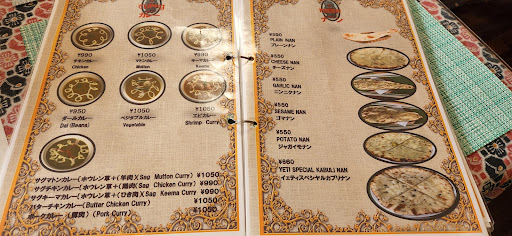 ¥990
チキンカレー
Chicken
¥1050
マトンカレー
Mutton
¥990
キーマカレー
Keema
¥950
ダールカレー
Dal (Beans)
¥1050
ベジタブルカレー
Vegetable
¥1050
エビカレー
Shrimp Curry
サグマトンカレー(ホウレン草+(羊肉)(Sag Mutton Curry) ¥1050
サグチキンカレー(ホウレン草+(鶏肉)(Sag Chicken Curry) ¥990
サグキーマカレー(ホウレン草+(ひき肉)(Sag Keema Curry) ¥990
バターチキンカレー(Butter Chicken Curry) ¥1050
ポークカレー (豚肉) (Pork Curry) ¥1050
PLAIN NAN
プレーンナン
¥550
CHEESE NAN
チーズナン
¥550
GARLIC NAN
ニンニクナン
¥550
SESAME NAN
ゴマナン
¥550
POTATO NAN
ジャガイモナン
¥660
YETI SPECIAL KABULI NAN
イェティスペシャルカブリナン